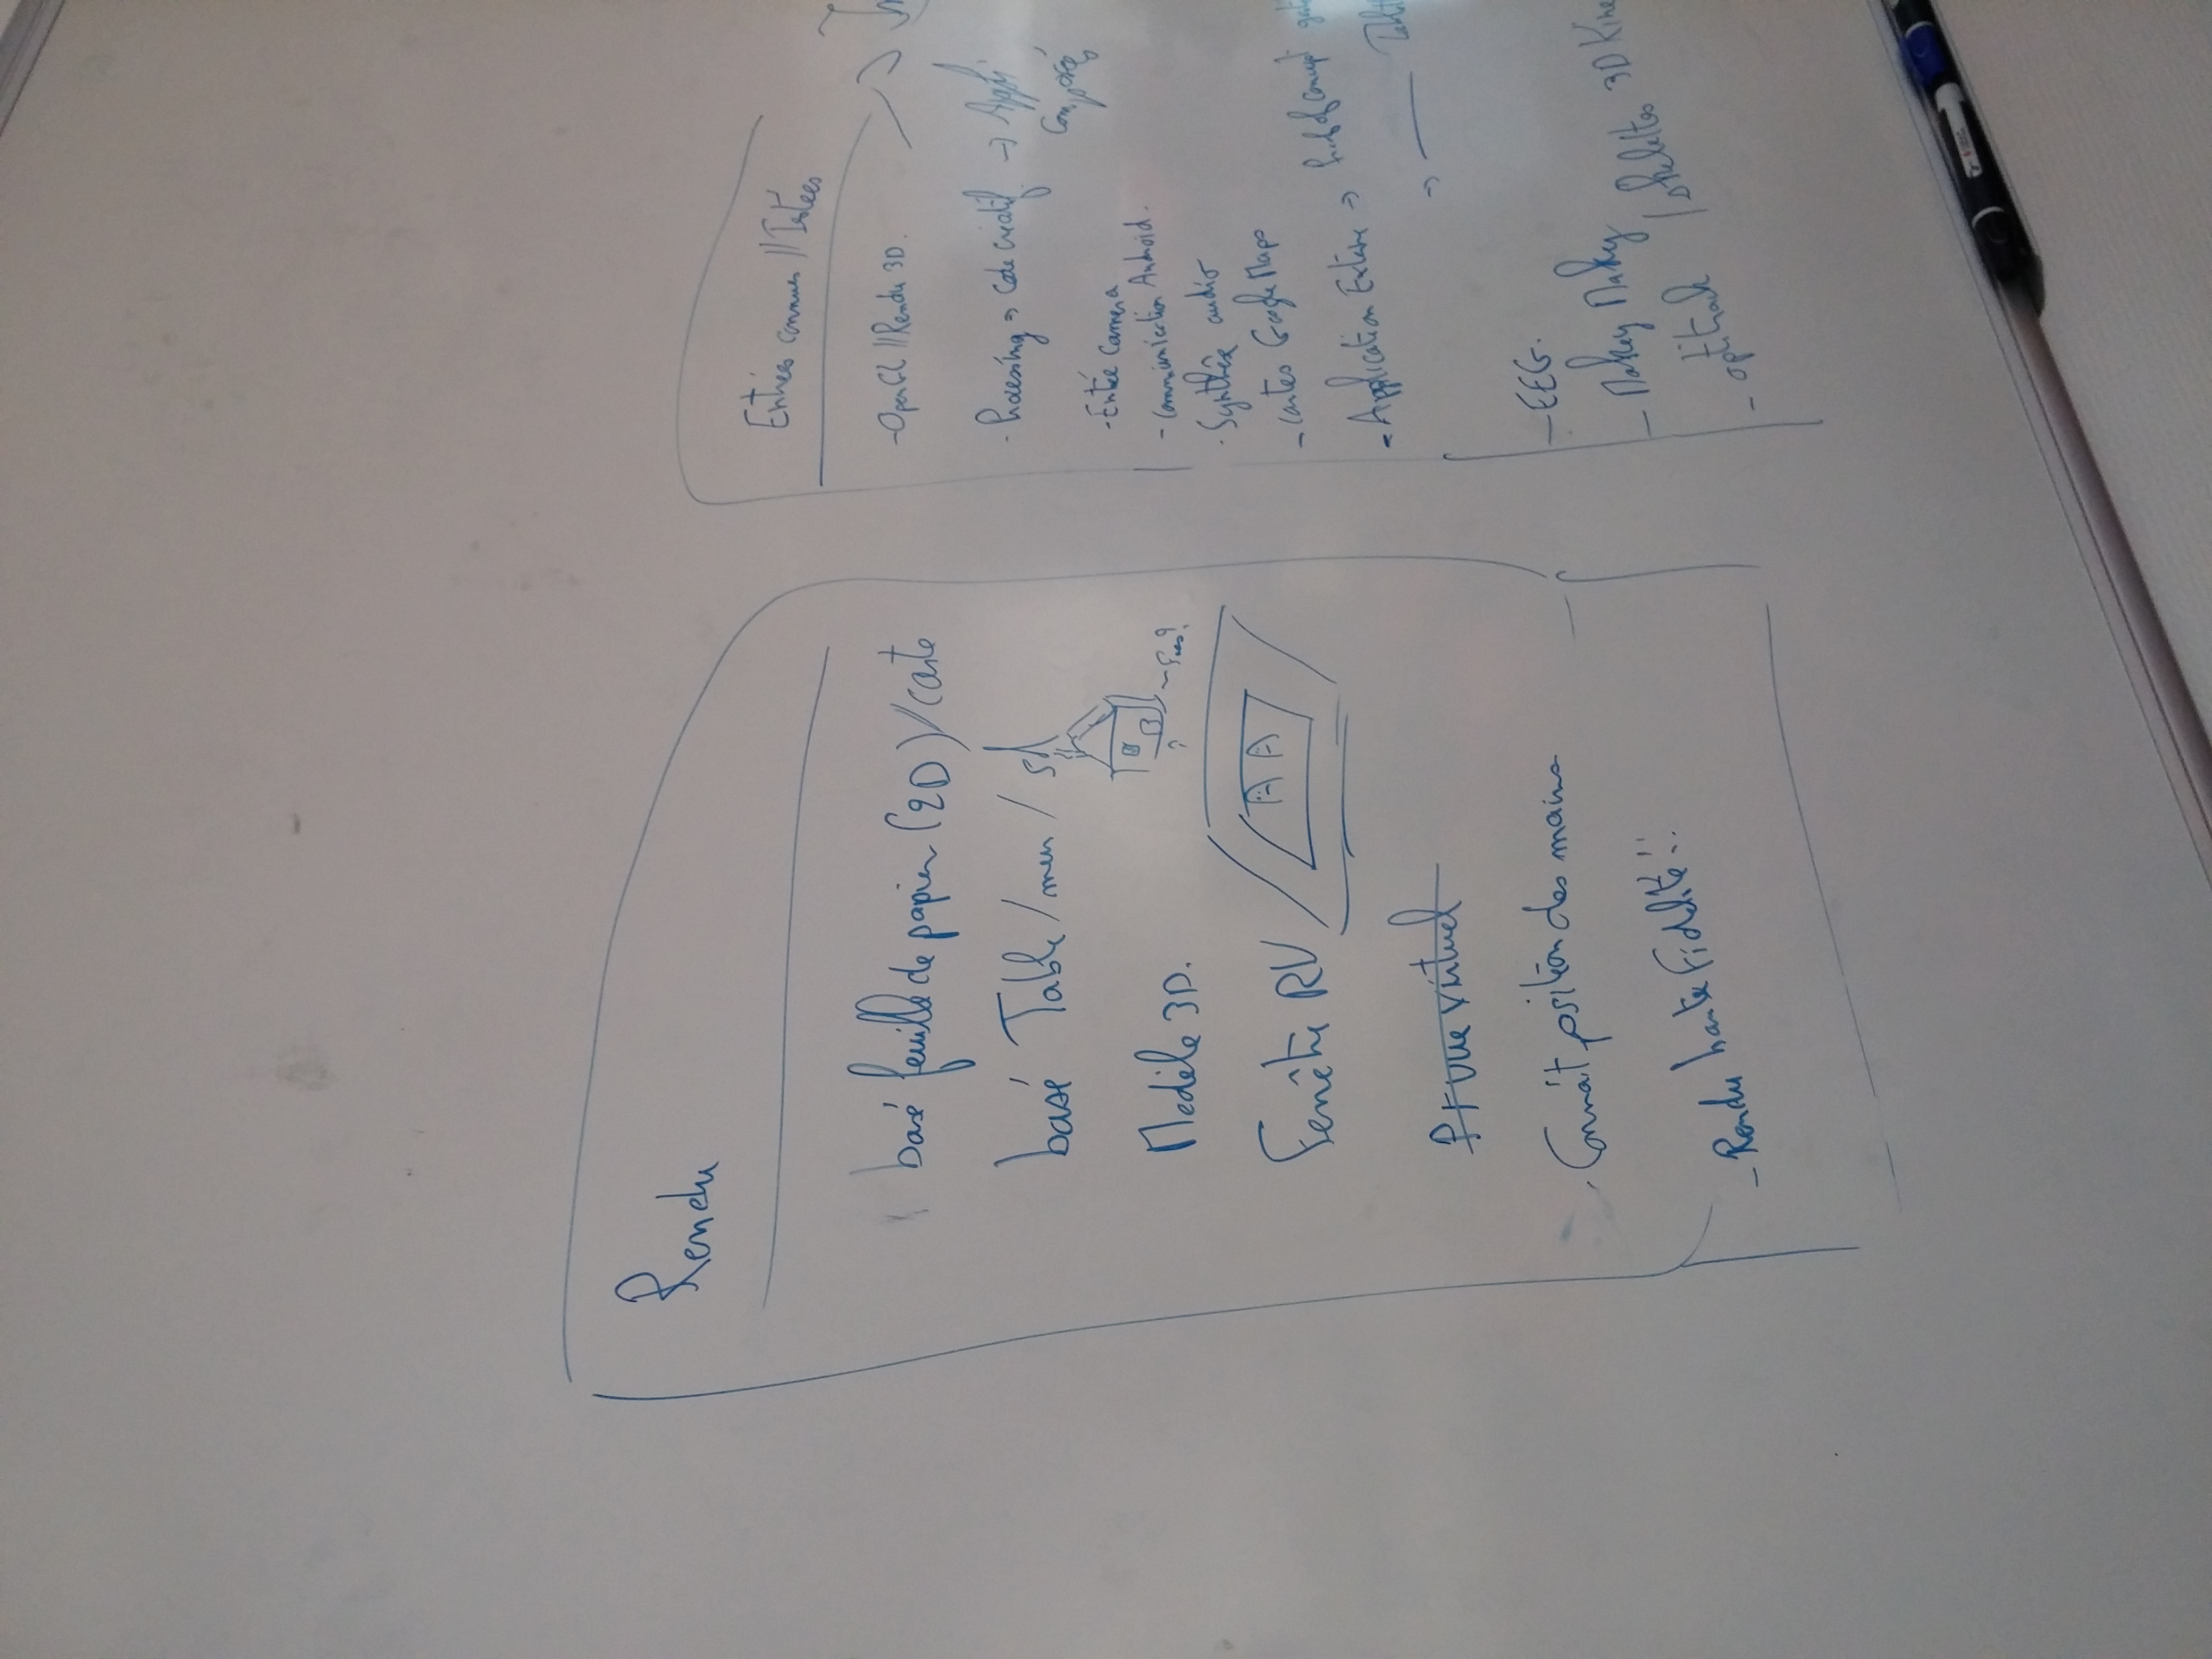 Rendu
basé feuille de papier (2D) // carte
basé Table / mur / sol
Modèle 3D.
Fenêtre RV
Pt vue virtuel
Connaît position des mains
- Rendu haute Fidélité !!
Entrées connues // Testées
- OpenGL // Rendu 3D.
- Processing => Code créatif -> Appli
Composées
- Entrée Camera
- Communication Android.
- Synthèse audio
- Cartes Google Maps
- Application Externe -> Proof of concept
->
- EEG.
- Makey Makey
- optitrack / skelettes 3D Kine